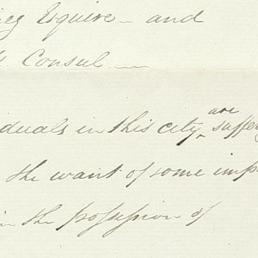 Esquire — and
Consul —
iduals in this city, are suffe
the want of some imp
in the possession of